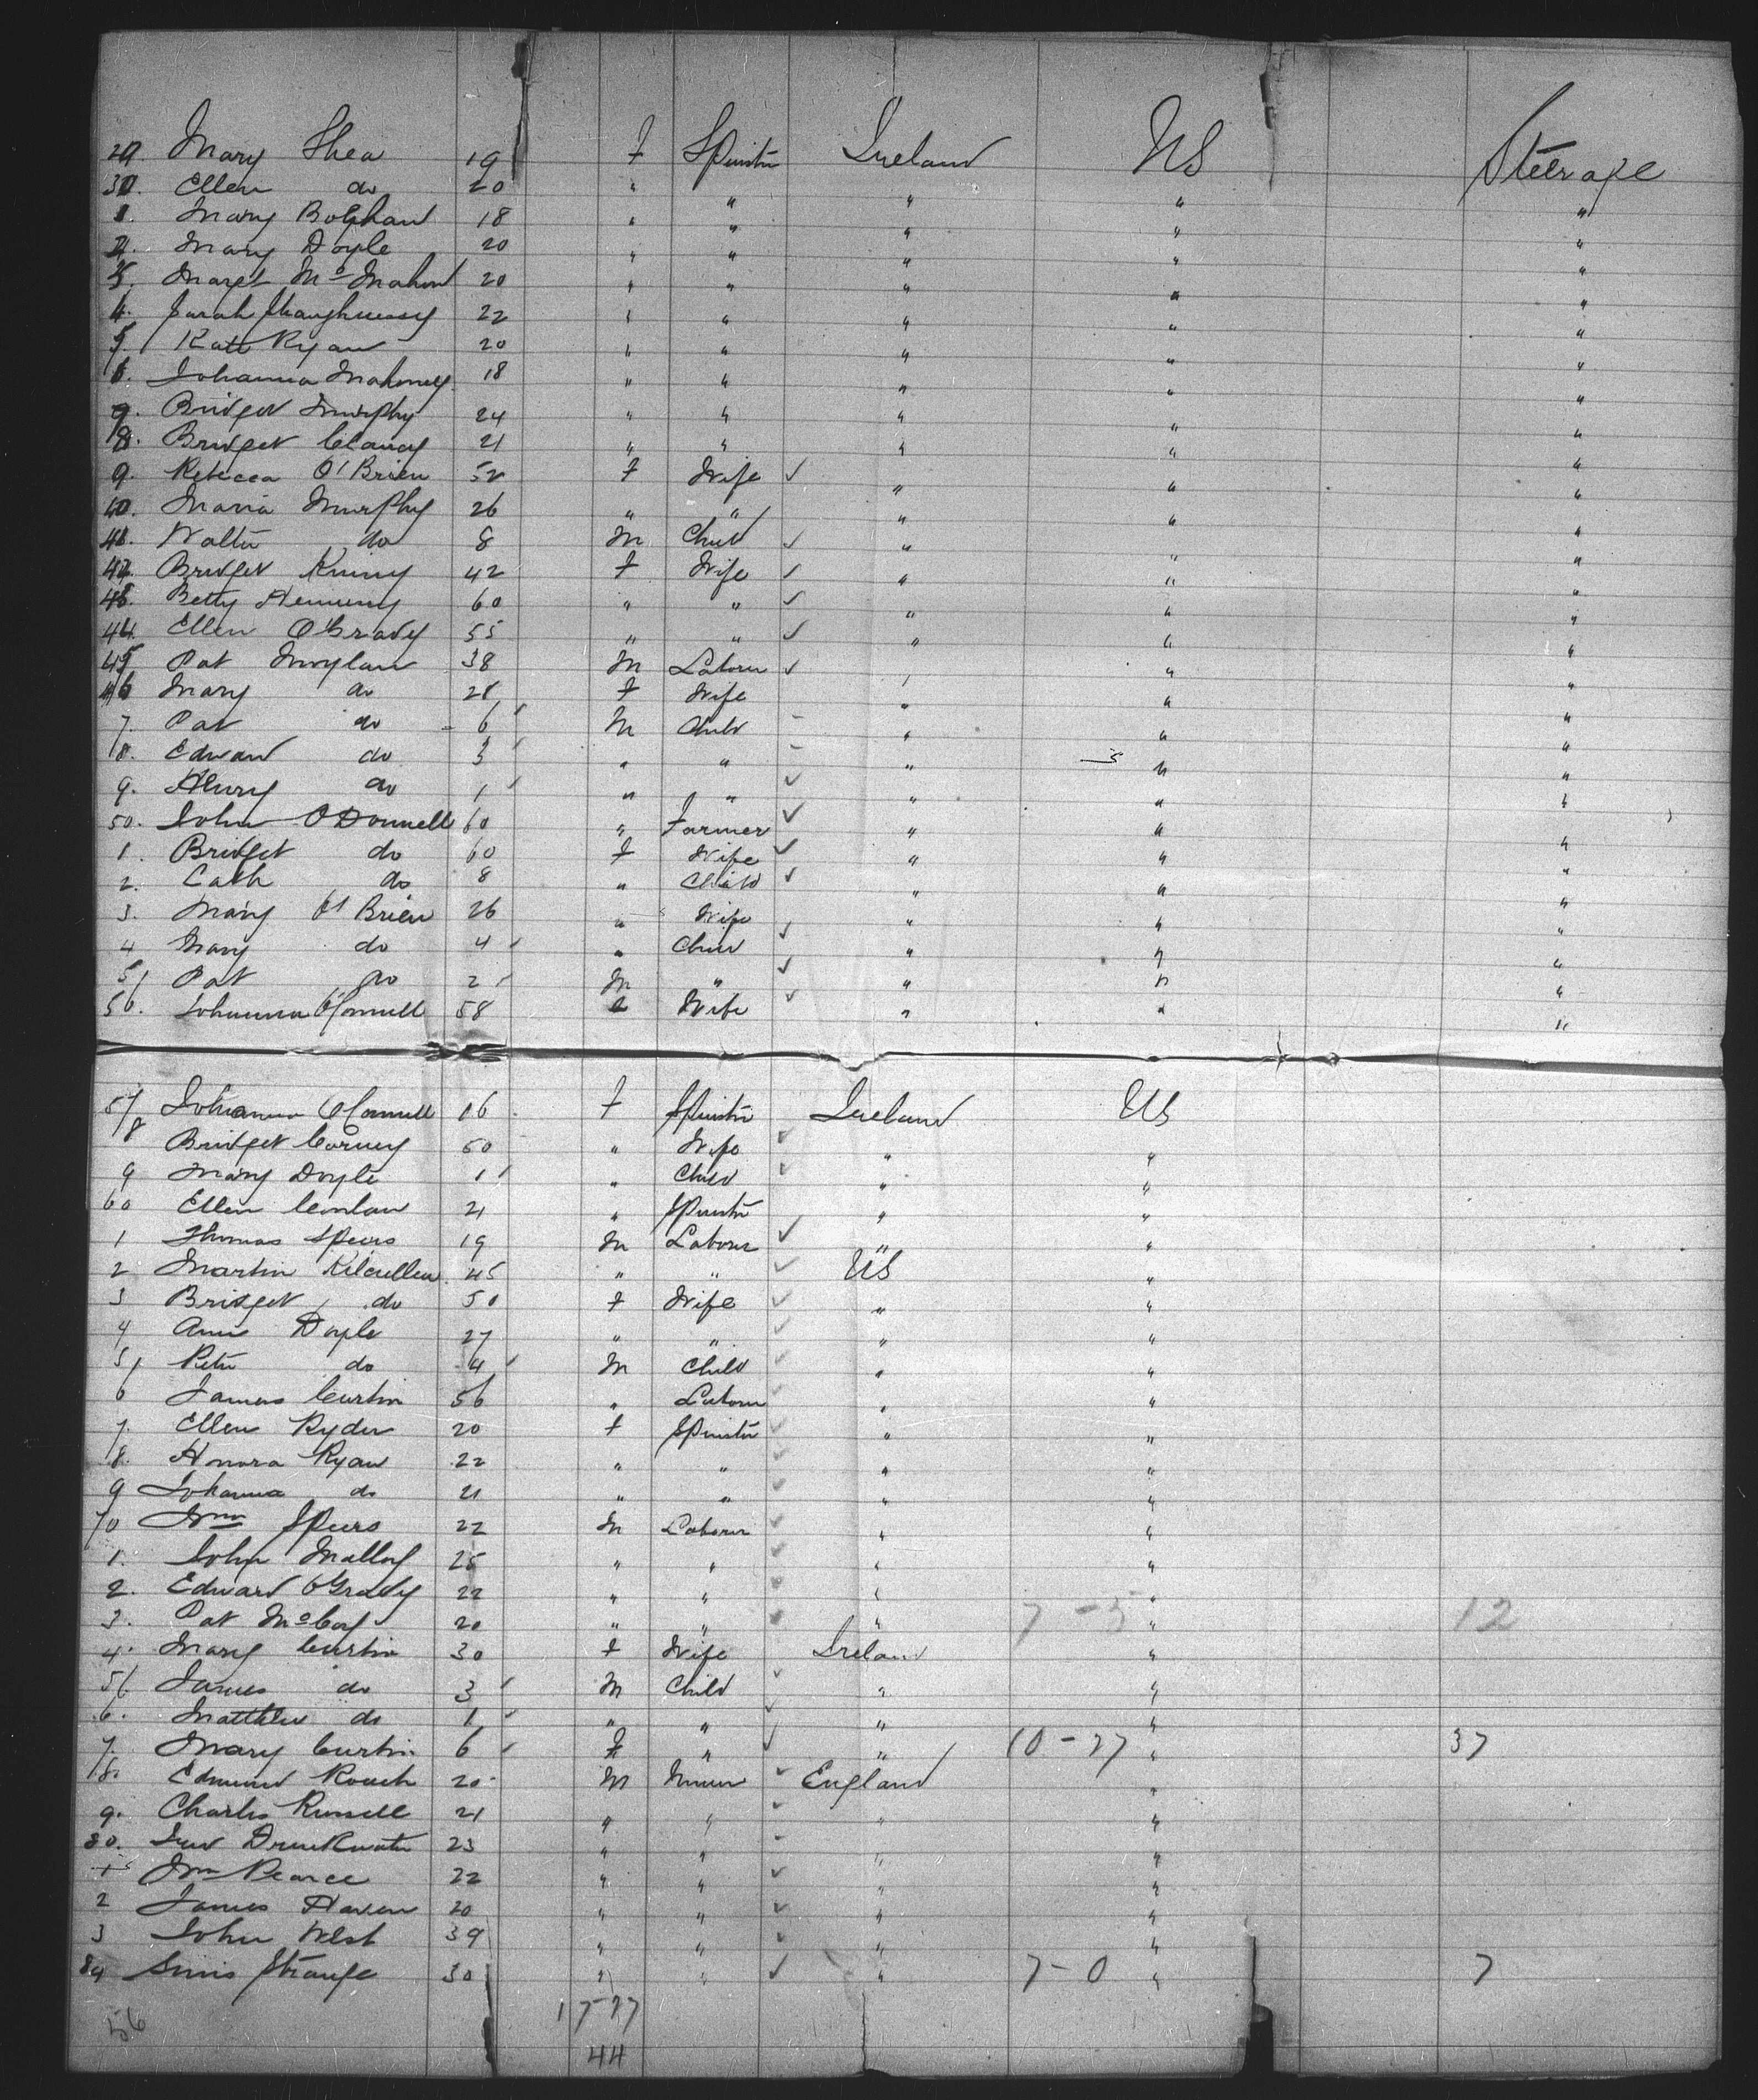 29. Mary Shea 19 F Spinstr Ireland US Steerage
30. Ellen do 20 " " " " "
1. Mary 18 " " " " "
2. Mary Doyle 20 " " " " "
3. Margt McMahon 20 " " " " "
4. Sarah Shaughnessy 22 " " " " "
5. Kate Ryan 20 " " " " "
6. Johanna Mahoney 18 " " " " "
7. Bridget Murphy 24 " " " " "
8. Bridget Clancy 21 " " " " "
9. Rebecca O'Brien 52 F Wife ✓ " " "
40. Maria Murphy 26 " " " " "
41. Walter do 8 M Child ✓ " " "
42. Bridget Kinny 42 F Wife ✓ " " "
43. Betty 60 " " ✓ " " "
44. Ellen O'Grady 55 " " ✓ " " "
45 Pat Moylan 38 M Laborer ✓ " " "
46 Mary do 28 F Wife " " "
7. Pat do 6 M Child - " " "
8. Edward do 3 " " - " " "
9. Henry do 1 " " ✓ " " "
50. John O'Donnell 60 " Farmer ✓ " " "
1. Bridget do 60 F Wife ✓ " " "
2. Cath do 8 " Child ✓ " " "
3. Mary O'Brien 26 " Wife " " "
4 Mary do 4 " Child ✓ " " "
5 Pat do 2 M " ✓ " " "
56. Johanna 58 Wife ✓ " " "
57 Johanna 16 F Spinstr Ireland US
8 Bridget 50 " Wife ✓ " "
9 Mary Doyle 1 " Child ✓ " "
60 Ellen Conlan 21 " Spinstr " "
1 Thomas Speers 19 M Laborer ✓ " "
2 Martin Kilcullen 45 " " ✓ US "
3 Bridget do 50 F Wife ✓ " "
4 Annie Doyle 27 " " ✓ " "
5 Peter do 4 M Child ✓ " "
6 James Curtin 56 " Laborer ✓ " "
7. Ellen Ryder 20 F Spinstr ✓ " "
8. Honora Ryan 22 " " ✓ " "
9 Johanna do 21 " " ✓ " "
70 Wm Speers 22 M Laborer ✓ " "
1. John Malloy 25 " " ✓ " "
2. Edward O'Grady 22 " " ✓ " "
3. Pat McCoy 20 " " ✓ " 7-5 " 12
4. Mary Curtin 30 F Wife Ireland "
5 James do 3 M Child ✓ " "
6. Matthew do 1 " " ✓ " "
7. Mary Curtin 6 F " ✓ " 10-27 " 37
8. Edmund Roach 20 M Miner ✓ England "
9. Charles Russell 21 " " ✓ " "
80. Drinkwater 23 " " - " "
1 Wm Pearce 22 " " ✓ " "
2 James Haven 20 " " ✓ " "
3 John West 39 " " ✓ " "
84 Strange 30 " " ✓ " 7-0 " 7
56 17-27
44